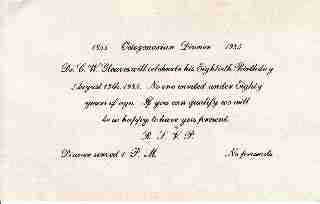 1855 Octogenarian Dinner 1935
Dr. C. W. will celebrate his Eightieth Birthday
August 1935. No one invited under Eighty
years of age. If you can qualify we will
be so happy to have you present.
R. S. V. P.
Dinner served 1 P. M. No presents